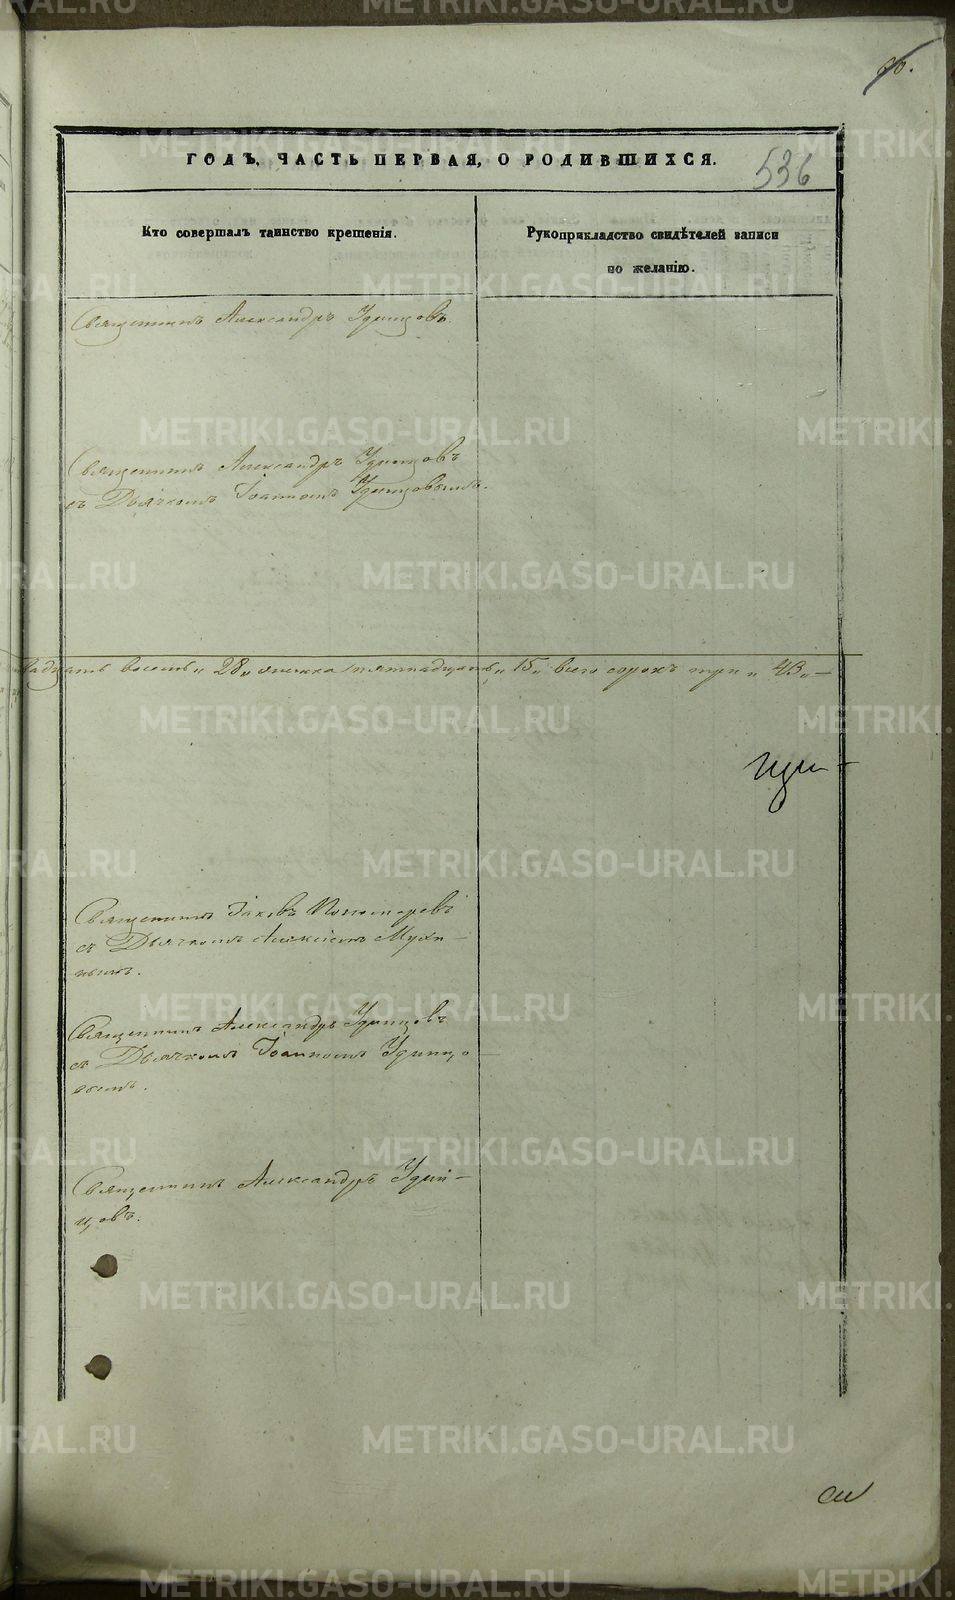 60.
ГОДЪ, ЧАСТЬ ПЕРВАЯ, О РОДИВШИХСЯ.
536
Кто совершалъ таинство крещенія.
Рукоприкладство свидѣтелей записи
по желанію.
Священникъ Александръ Удинцовъ.
Священникъ Александръ Удинцовъ
съ Дьячкомъ Іоанномъ Удинцовымъ.
восемь „28„ женска пятнадцать „15„ всего сорокъ три „43„ —
Священникъ Іаковъ Пономаревъ
съ Дьячкомъ Алексіемъ Мухи-
нымъ.
Священникъ Александръ Удинцовъ
съ Дьячкомъ Іоанномъ Удинцо-
вымъ.
Священникъ Александръ Удин-
цовъ.
METRIKI.GASO-URAL.RU